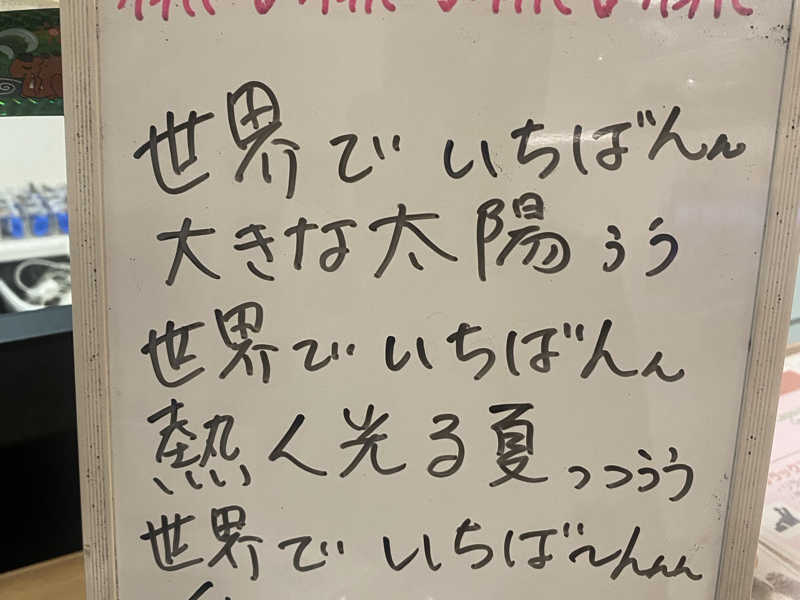 世界でいちばんん
大きな太陽ぅう
世界でいちばんん
熱く光る夏っっぅう
世界でいちば〜んんん